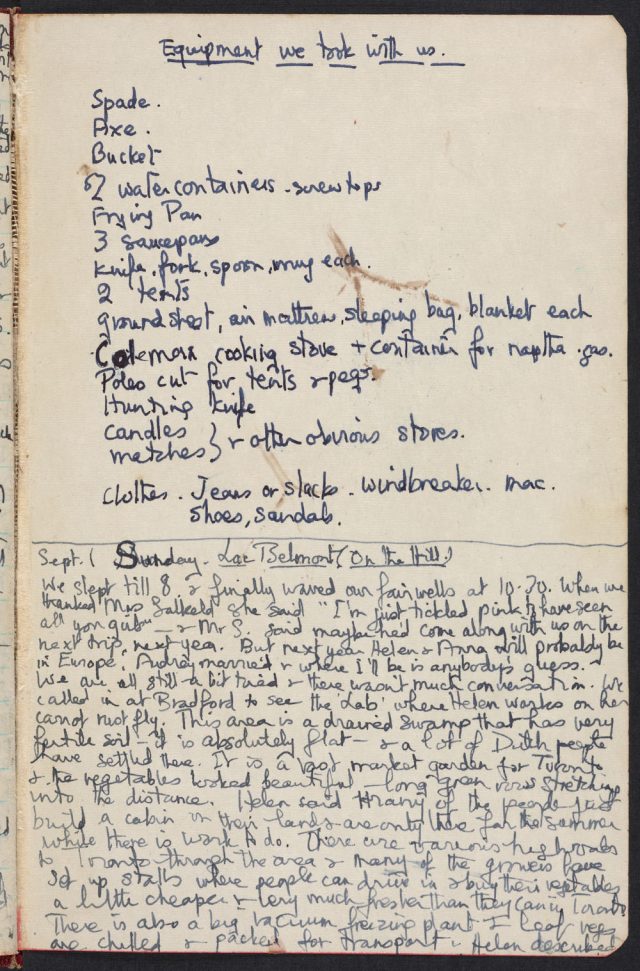 Equipment we took with us.
Spade.
Axe.
Bucket
2 water containers - screw tops
Frying Pan
3 saucepans
Knife, fork, spoon, mug each.
2 tents
ground sheet, air mattress, sleeping bag, blanket each
Coleman cooking stove + container for naptha gas.
Poles cut for tents & pegs.
Hunting Knife
candles
matches } & other obvious stores.
Clothes. Jeans or slacks. Windbreaker. mac.
Shoes, Sandals.
Sept. 1 Sunday. Lac Belmont (On the Hill)
We slept till 8 & finally waved our fairwells at 10.30. When we
thanked Mrs Salkeld she said "I'm just tickled pink to have seen
all you guils" - & Mr S. said maybe he'd come along with us on the
next trip, next year. But next year Helen & Anna will probably be
in Europe, Audrey married & where I'll be is anybody's guess. -
We are all still a bit tired & there wasn't much conversation. We
called in at Bradford to see the 'Lab' where Helen works on her
carrot rust fly. This area is a drained swamp that has very
fertile soil - it is absolutely flat - & a lot of Dutch people
have settled there. It is a vast market garden for Toronto
& the vegetables looked beautiful - long green rows stretching
into the distance. Helen said many of the people just
build a cabin on their land & are only there for the summer
while there is work to do. There are various highroads
to Toronto through the area & many of the growers have
set up stalls where people can drive in & buy their vegetables
a little cheaper & very much fresher than they can in Toronto.
There is also a big vacuum freezing plant & leaf veges
are chilled & packed for transport. Helen described